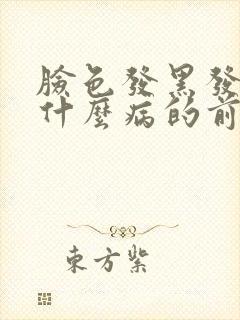 臉色發黑發
什麼病的前
東方紫